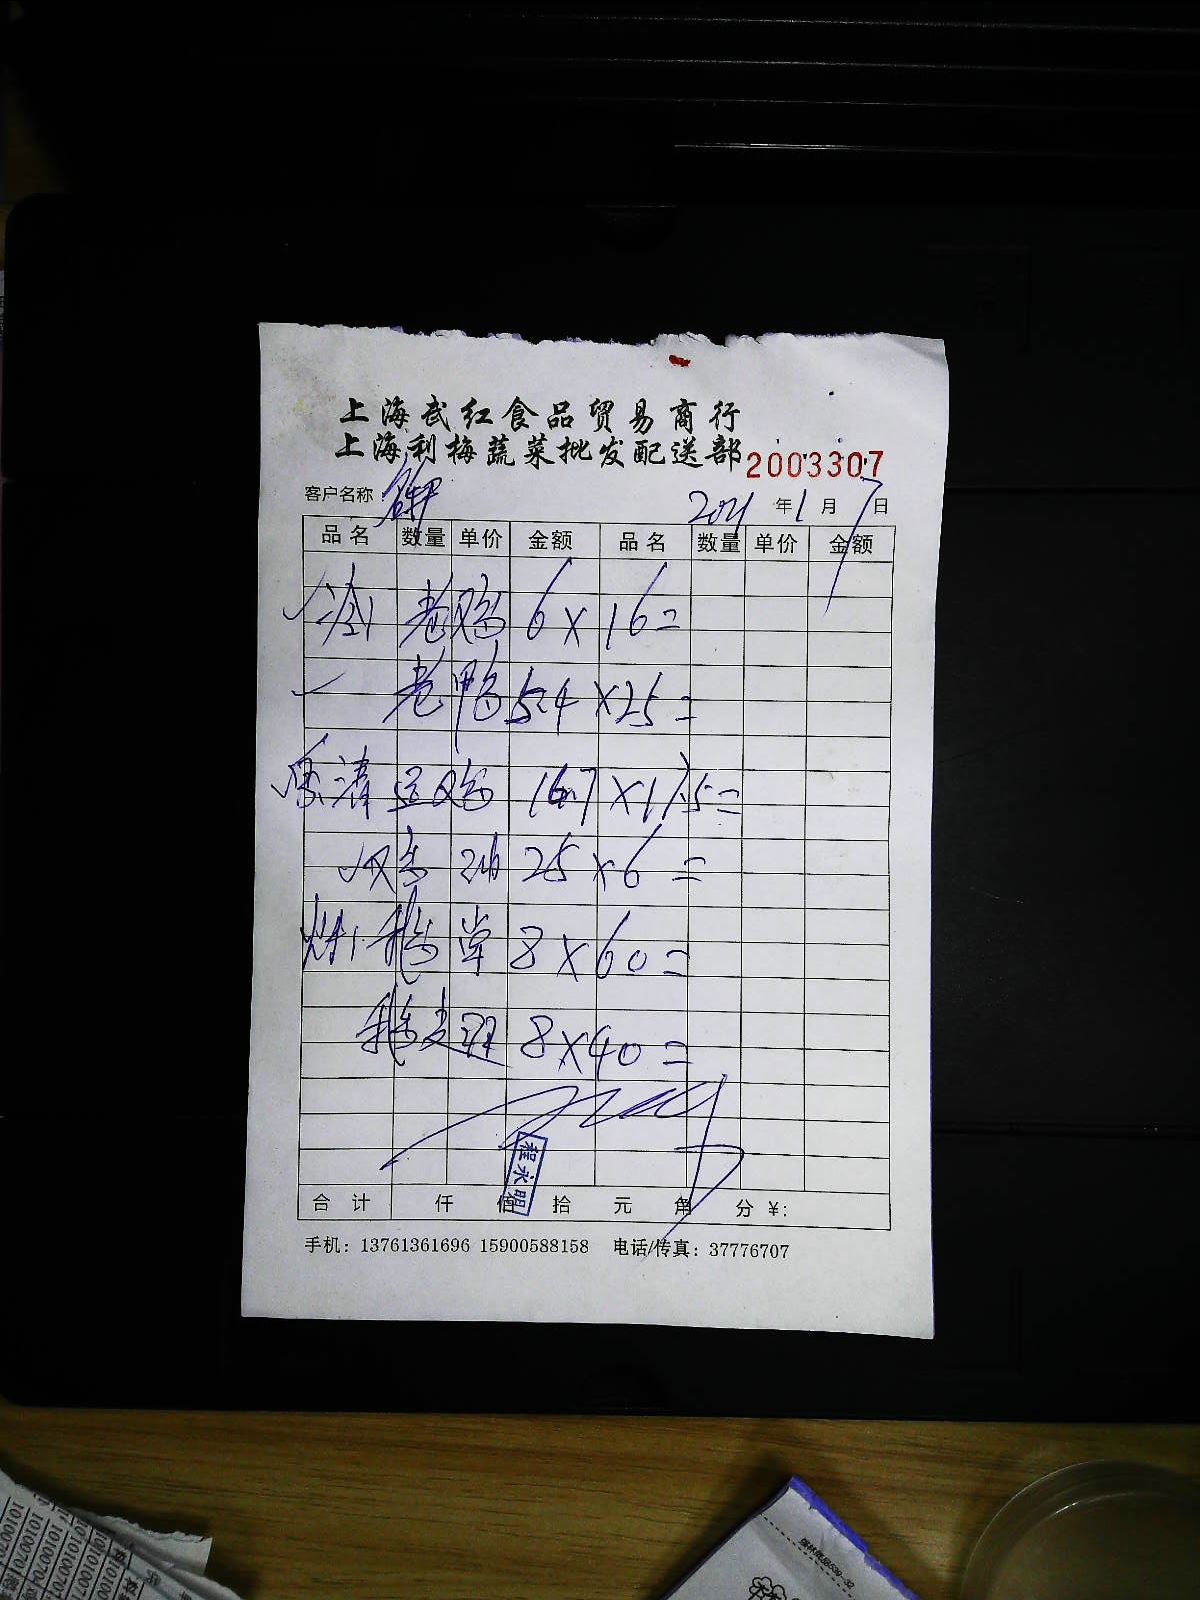 上海武红食品贸易商行
上海利梅蔬菜批发配送部 2003307
客户名称 2021 年 1 月 7 日
品名 数量 单价 金额 品名 数量 单价 金额
老鸡 6×16=
老鸭 5.4×25=
清远鸡 16.7×17.5=
鸡油 25×6=
鹅掌 8×60=
鹅翅 8×40=
程永明
合计 仟 佰 拾 元 角 分 ¥:
手机: 13761361696 15900588158 电话/传真: 37776707